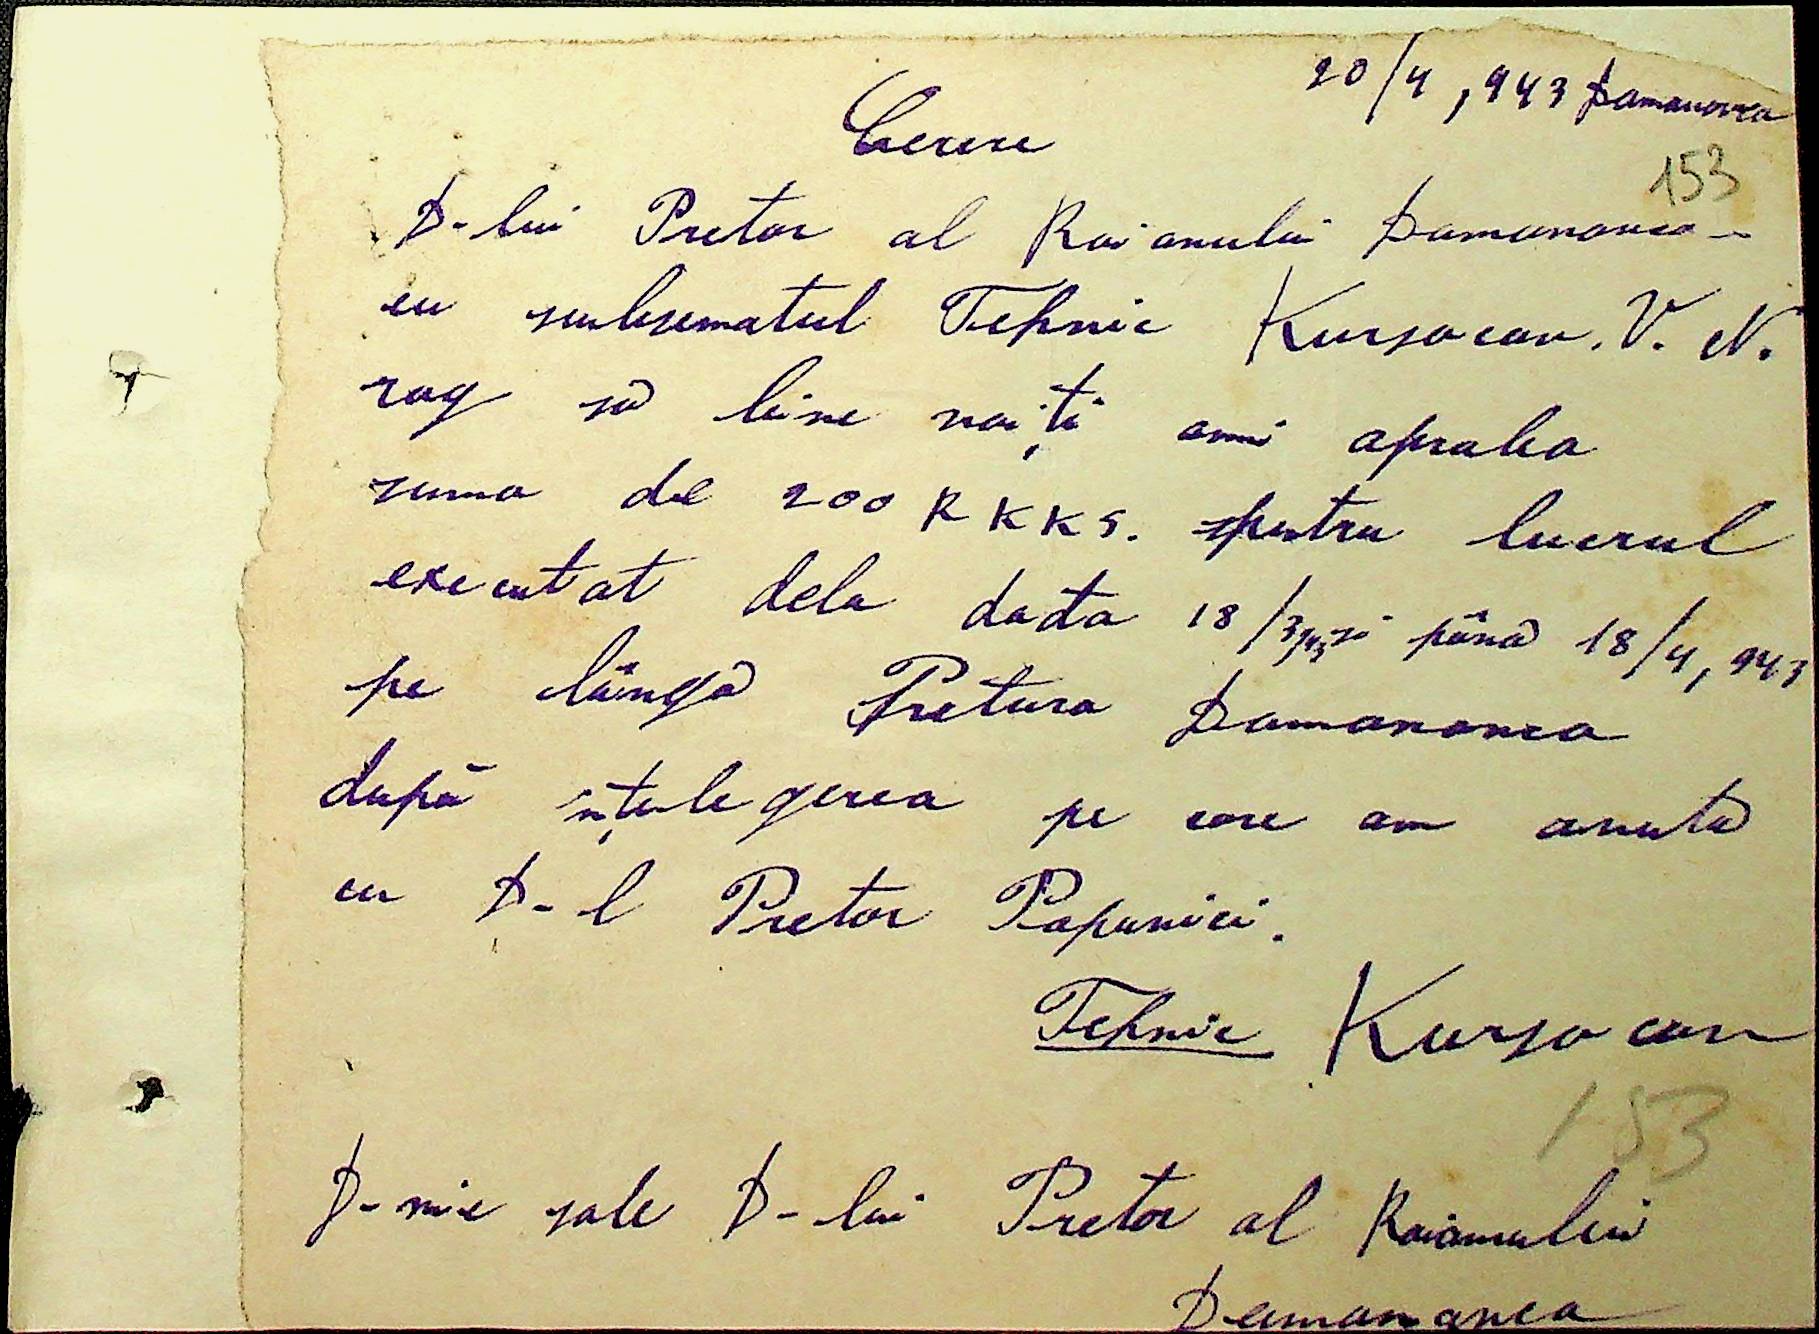 20/4, 943 Damanovca
Cerere
153
D-lui Pretor al Raianului Damanovca
eu subsematul Tehnic Kursacov. V. N.
rog să bine voiți ami apraba
suma de 200 RKKS. pentru lucrul
executat dela data 18/3 943 și până 18/4, 943
pe lângă Pretura Damanovca
după ințelegerea pe care am avută
cu D-l Pretor Papunici.
Tehnic Kursacov
153
D-mie sale D-lui Pretor al Raianului
Damanovca